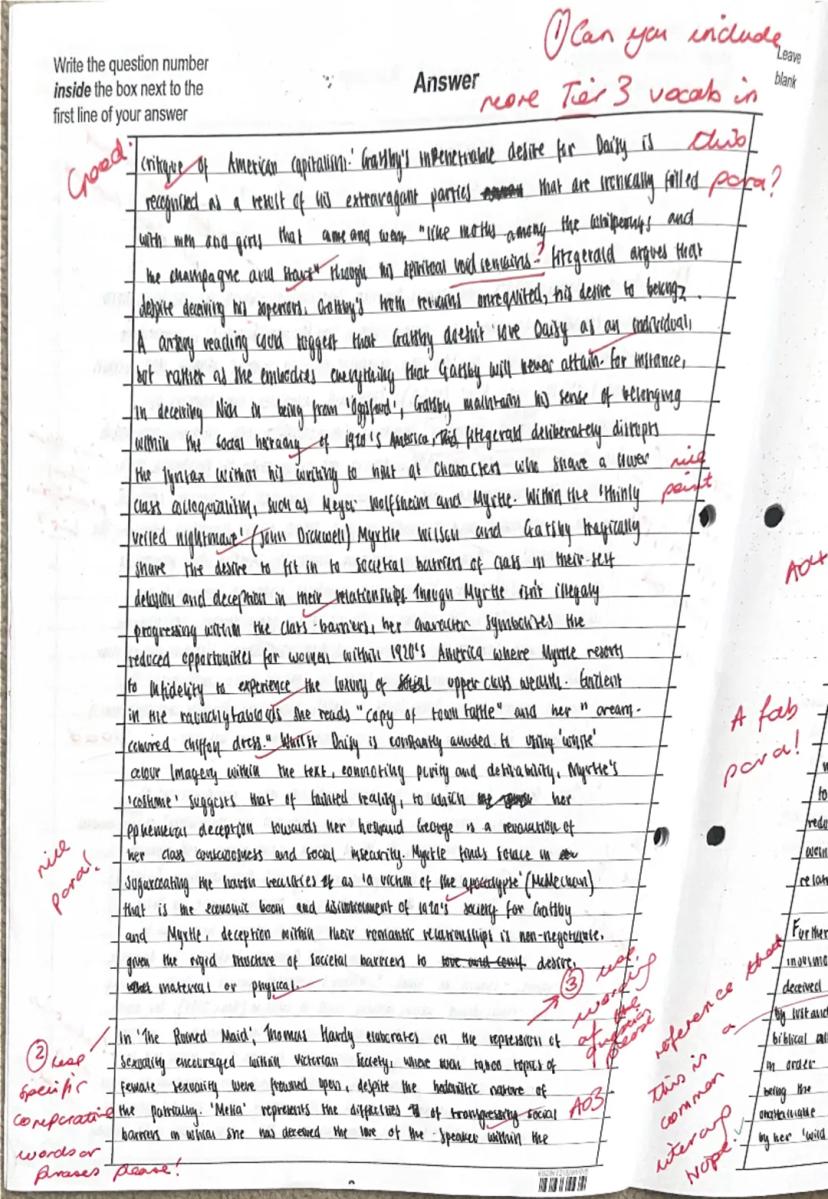 ① Can you include
more Tier 3 vocab in
this
para?
Write the question number
inside the box next to the
first line of your answer
Answer
Leave
blank
Good.
critique of American capitalism.' Gatsby's impenetrable desire for Daisy is
recognised as a result of his extravagant parties that are ironically filled
with men and girls that came and went "like moths among the whisperings and
the champagne and stars" though his spiritual void remains. Fitzgerald argues that
?
despite deceiving his superiors, Gatsby's truth remains unrequited, his desire to belong.
A critical reading could suggest that Gatsby doesn't love Daisy as an individual,
but rather as she embodies everything that Gatsby will never attain. For instance,
in deceiving Nick in being from 'Oggsford', Gatsby maintains his sense of belonging
within the social of 1920's America, Fitzgerald deliberately disrupts
the syntax within his writing to hint at characters who share a lower
nice
point
class colloquiality, such as Meyer Wolfsheim and Myrtle. Within the 'thinly
veiled nightmare' (John) Myrtle Wilson and Gatsby tragically
share the desire to fit in to societal barriers of class in their self
delusion and deception in their relationships. Though Myrtle isn't illegaly
progressing within the class-barriers, her character symbolises the
reduced opportunities for women within 1920's America where Myrtle resorts
to infidelity to experience the luxury of upper class wealth. Evident
in the raunchy tabloids she reads "copy of town tattle" and her "cream-
coloured chiffon dress." Whilst Daisy is constantly alluded to using 'white'
colour imagery within the text, connoting purity and desirability, Myrtle's
'costume' suggests that of tainted reality, to which her
ephemeral deception towards her husband George is a revelation of
her class consciousness and social insecurity. Myrtle finds solace in
sugarcoating the harsh realities as 'a victim of the apocalypse' (McMechan)
that is the economic boom and of 1920's society for Gatsby
and Myrtle, deception within their romantic relationships is non-negotiable,
given the rigid structure of societal barriers to desire,
material or physical.
nice
para!
③ use
wording
of the
question
please
In 'The Ruined Maid', Thomas Hardy elaborates on the repression of
sexuality encouraged within Victorian society, where such taboo topics of
female sexuality were frowned upon, despite the hedonistic nature of
the patriarchy. 'Melia' represents the difficulties of transgressing social
barriers in which she has deceived the love of the speaker within the
② use
specific
comparative
words or
phrases please!
AO3
AO4
A fab
para!
reference that
this is a
common
literary
trope.
Further
deceived
by lust and
biblical all
in order
being the
unattainable
by her 'wild